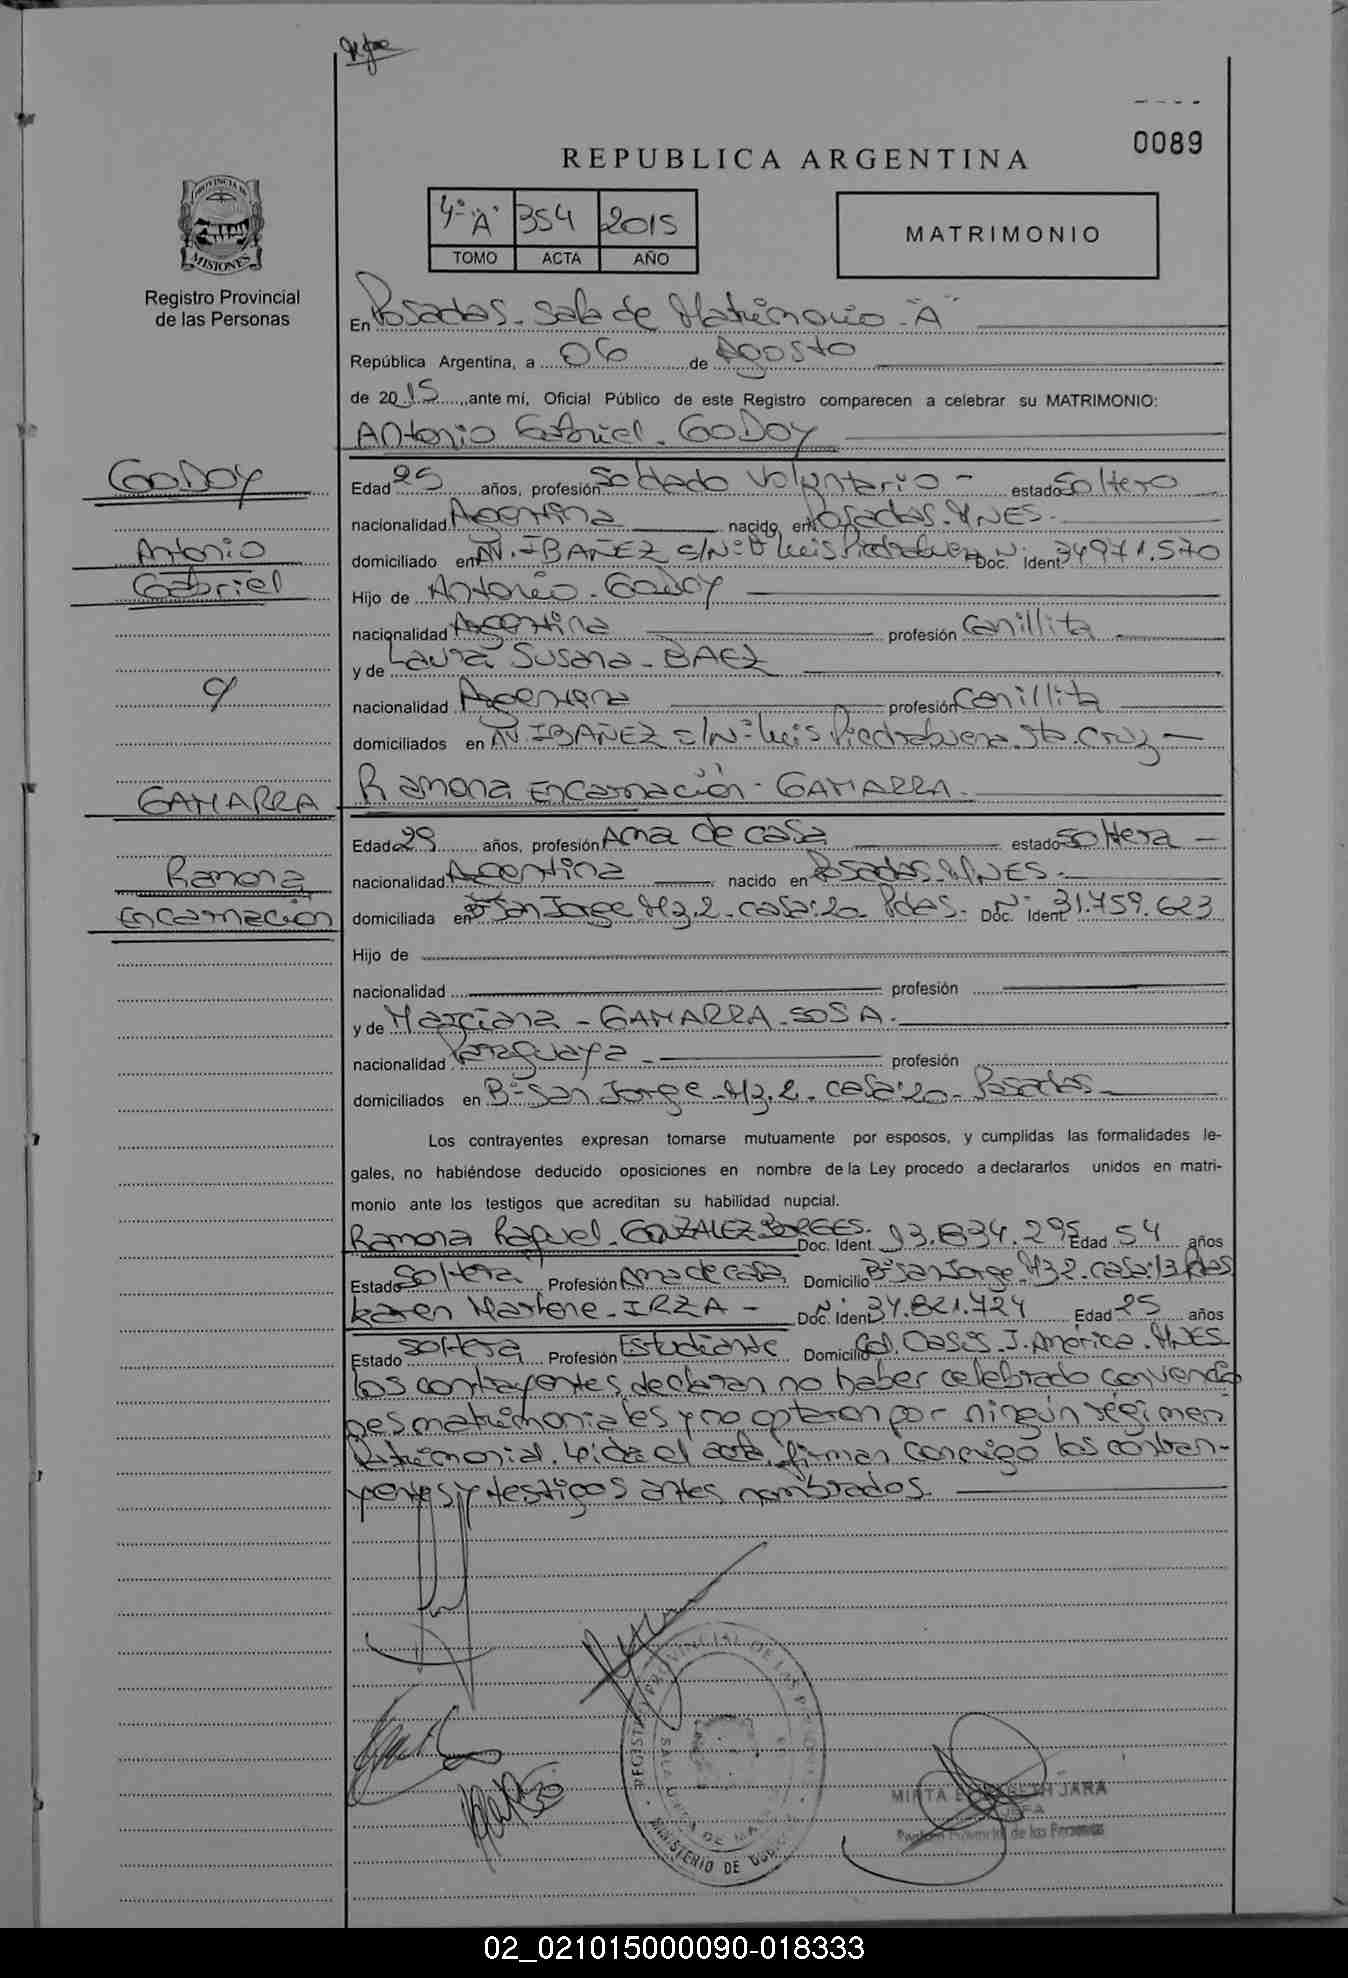 0089
REPUBLICA ARGENTINA
4º "A" 354 2015
TOMO ACTA AÑO
MATRIMONIO
PROVINCIA DE
MISIONES
Registro Provincial
de las Personas
En Posadas - Sala de Matrimonio - "A"
República Argentina, a 06 de Agosto
de 2015, ante mí, Oficial Público de este Registro comparecen a celebrar su MATRIMONIO:
Antonio Gabriel - GODOY
GODOY
Antonio
Gabriel
c/
GAMARRA
Ramona
Encarnación
Edad 25 años, profesión Soldado Voluntario - estado Soltero
nacionalidad Argentina nacido en Posadas. MNES.
domiciliado en AV. IBAÑEZ S/Nº Luis Piedrabuena Doc. Nº Ident 34971.570
Hijo de Antonio - GODOY
nacionalidad Argentina profesión Canillita
y de Laura Susana - BAEZ
nacionalidad Argentina profesión Canillita
domiciliados en AV. IBAÑEZ S/Nº Luis Piedrabuena Sta. Cruz
Ramona Encarnación - GAMARRA.
Edad 29 años, profesión Ama de casa estado Soltera
nacionalidad Argentina nacido en Posadas. MNES.
domiciliada en Bº San Jorge Mz. 2 - casa: 20 Pdas. Doc. Nº Ident 31.759.623
Hijo de
nacionalidad profesión
y de Marciana - GAMARRA - SOSA.
nacionalidad Paraguaya - profesión
domiciliados en Bº San Jorge - Mz. 2 - casa: 20 - Posadas
Los contrayentes expresan tomarse mutuamente por esposos, y cumplidas las formalidades le-
gales, no habiéndose deducido oposiciones en nombre de la Ley procedo a declararlos unidos en matri-
monio ante los testigos que acreditan su habilidad nupcial.
Ramona Raquel - GONZALEZ BORGES. Doc. Ident 13.834.295 Edad 54 años
Estado Soltera Profesión Ama de casa Domicilio Bº San Jorge Mz 2 - casa: 13 Pdas
Karen Marlene - IRZA - Doc. Nº Ident 34.821.724 Edad 25 años
Estado Soltera Profesión Estudiante Domicilio Col. Oasis. J. América. MNES.
Los contrayentes declaran no haber celebrado convencio
nes matrimoniales y no optaron por ningún régimen
Patrimonial. Leída el acta, firman conmigo los contra-
yentes y testigos antes nombrados.
REGISTRO PROVINCIAL DE LAS PERSONAS
MINISTERIO DE
MIRTA JARA
JEFA
de las Personas
02_021015000090-018333